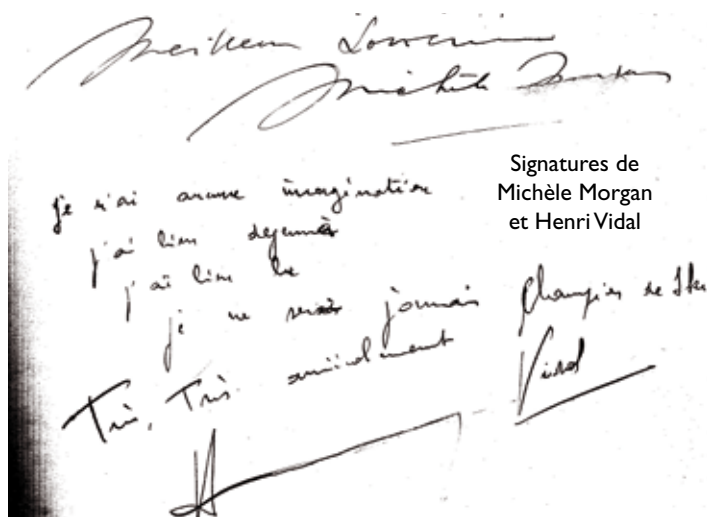 Meilleur Souvenir
Michèle Morgan
Signatures de
Michèle Morgan
et Henri Vidal
je n'ai aucune imagination
j'ai bien dejeuner
j'ai bien bu
je ne serai jamais Champion de Ski
Très, Très amicalement
Vidal
H